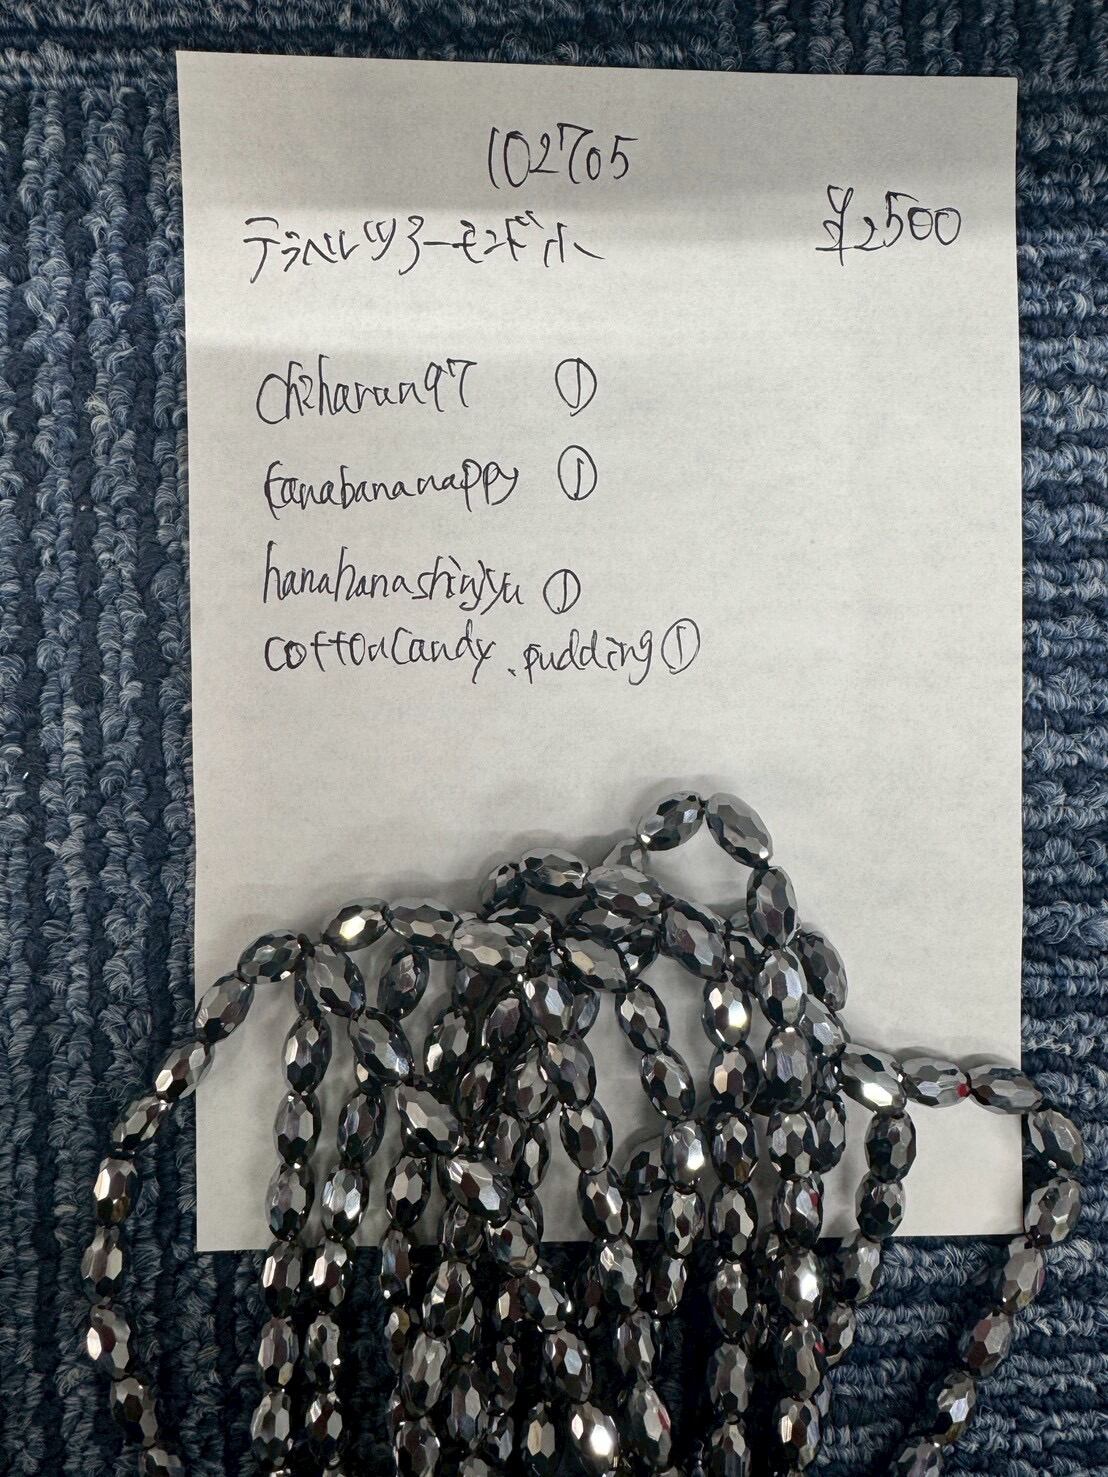 102705
テラヘルツアーモンド小 ¥2500
chiharun97 ①
tanabananappy ①
hanahanashinjyu ①
cottoncandy.pudding ①